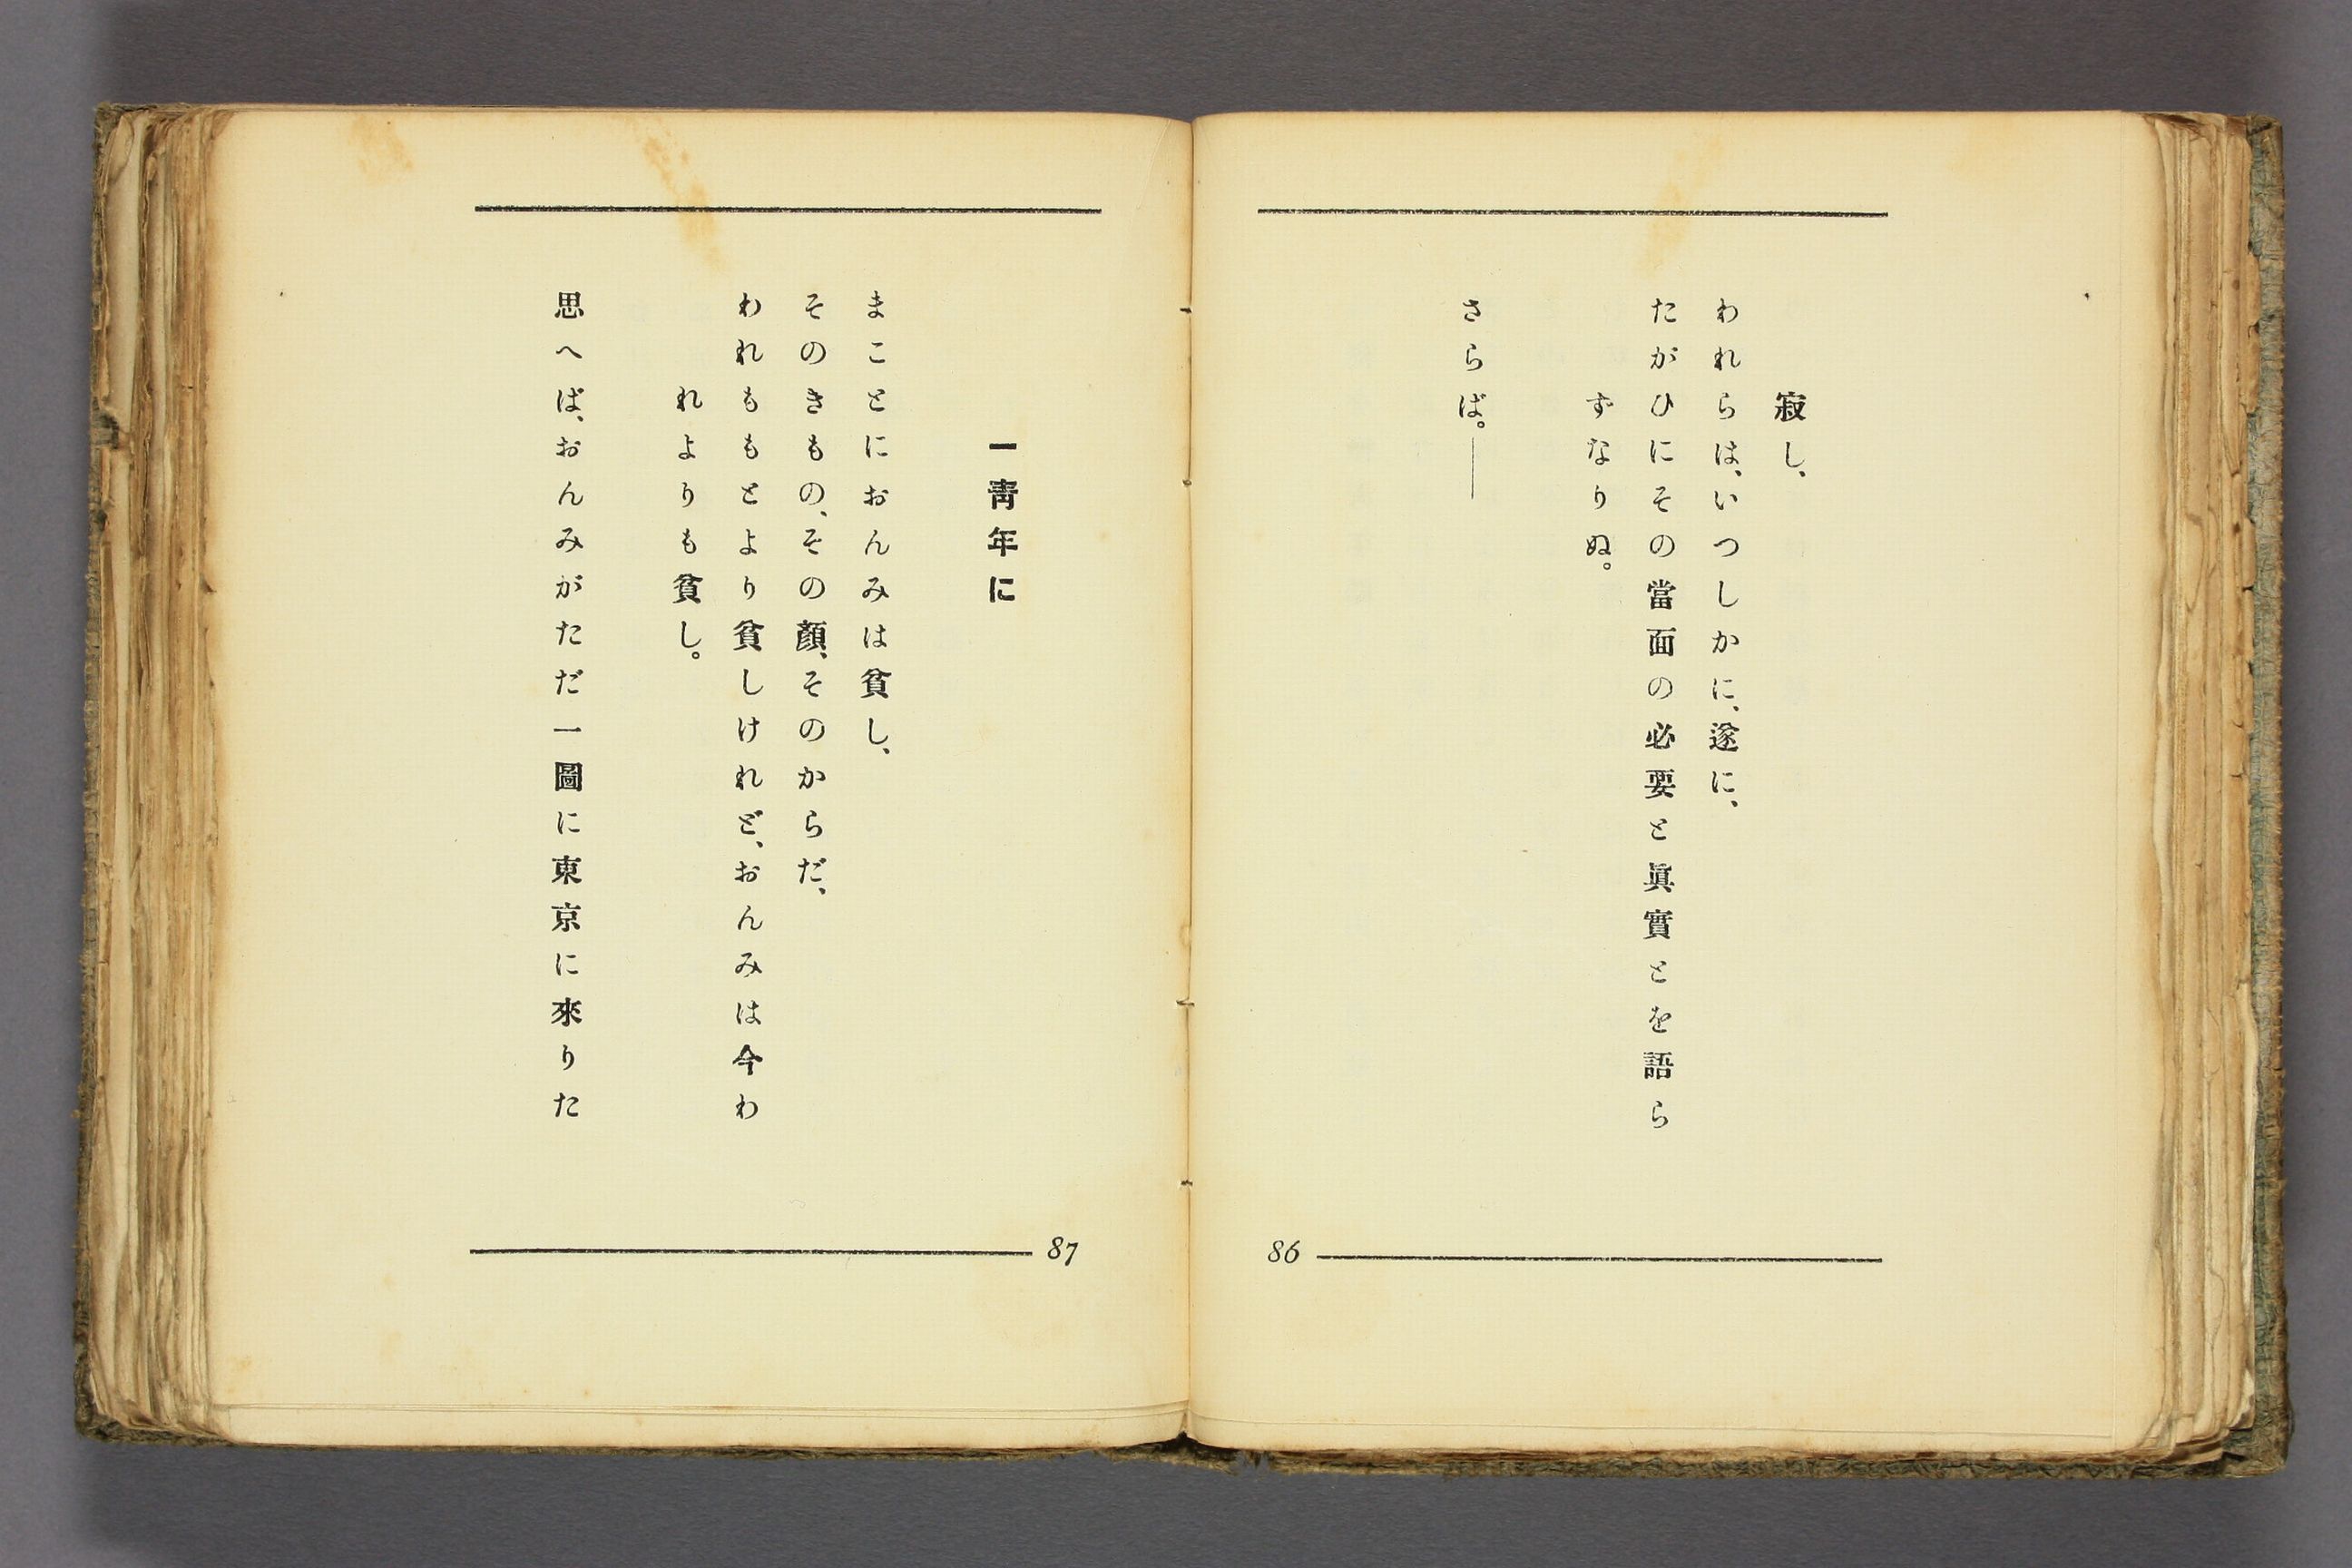 寂し、
われらは、いつしかに、遂に、
たがひにその當面の必要と眞實とを語ら
ずなりぬ。
さらば。――
86
一靑年に
まことにおんみは貧し、
そのきもの、その顏、そのからだ、
われももとより貧しけれど、おんみは今わ
れよりも貧し。
思へば、おんみがただ一圖に東京に來りた
87